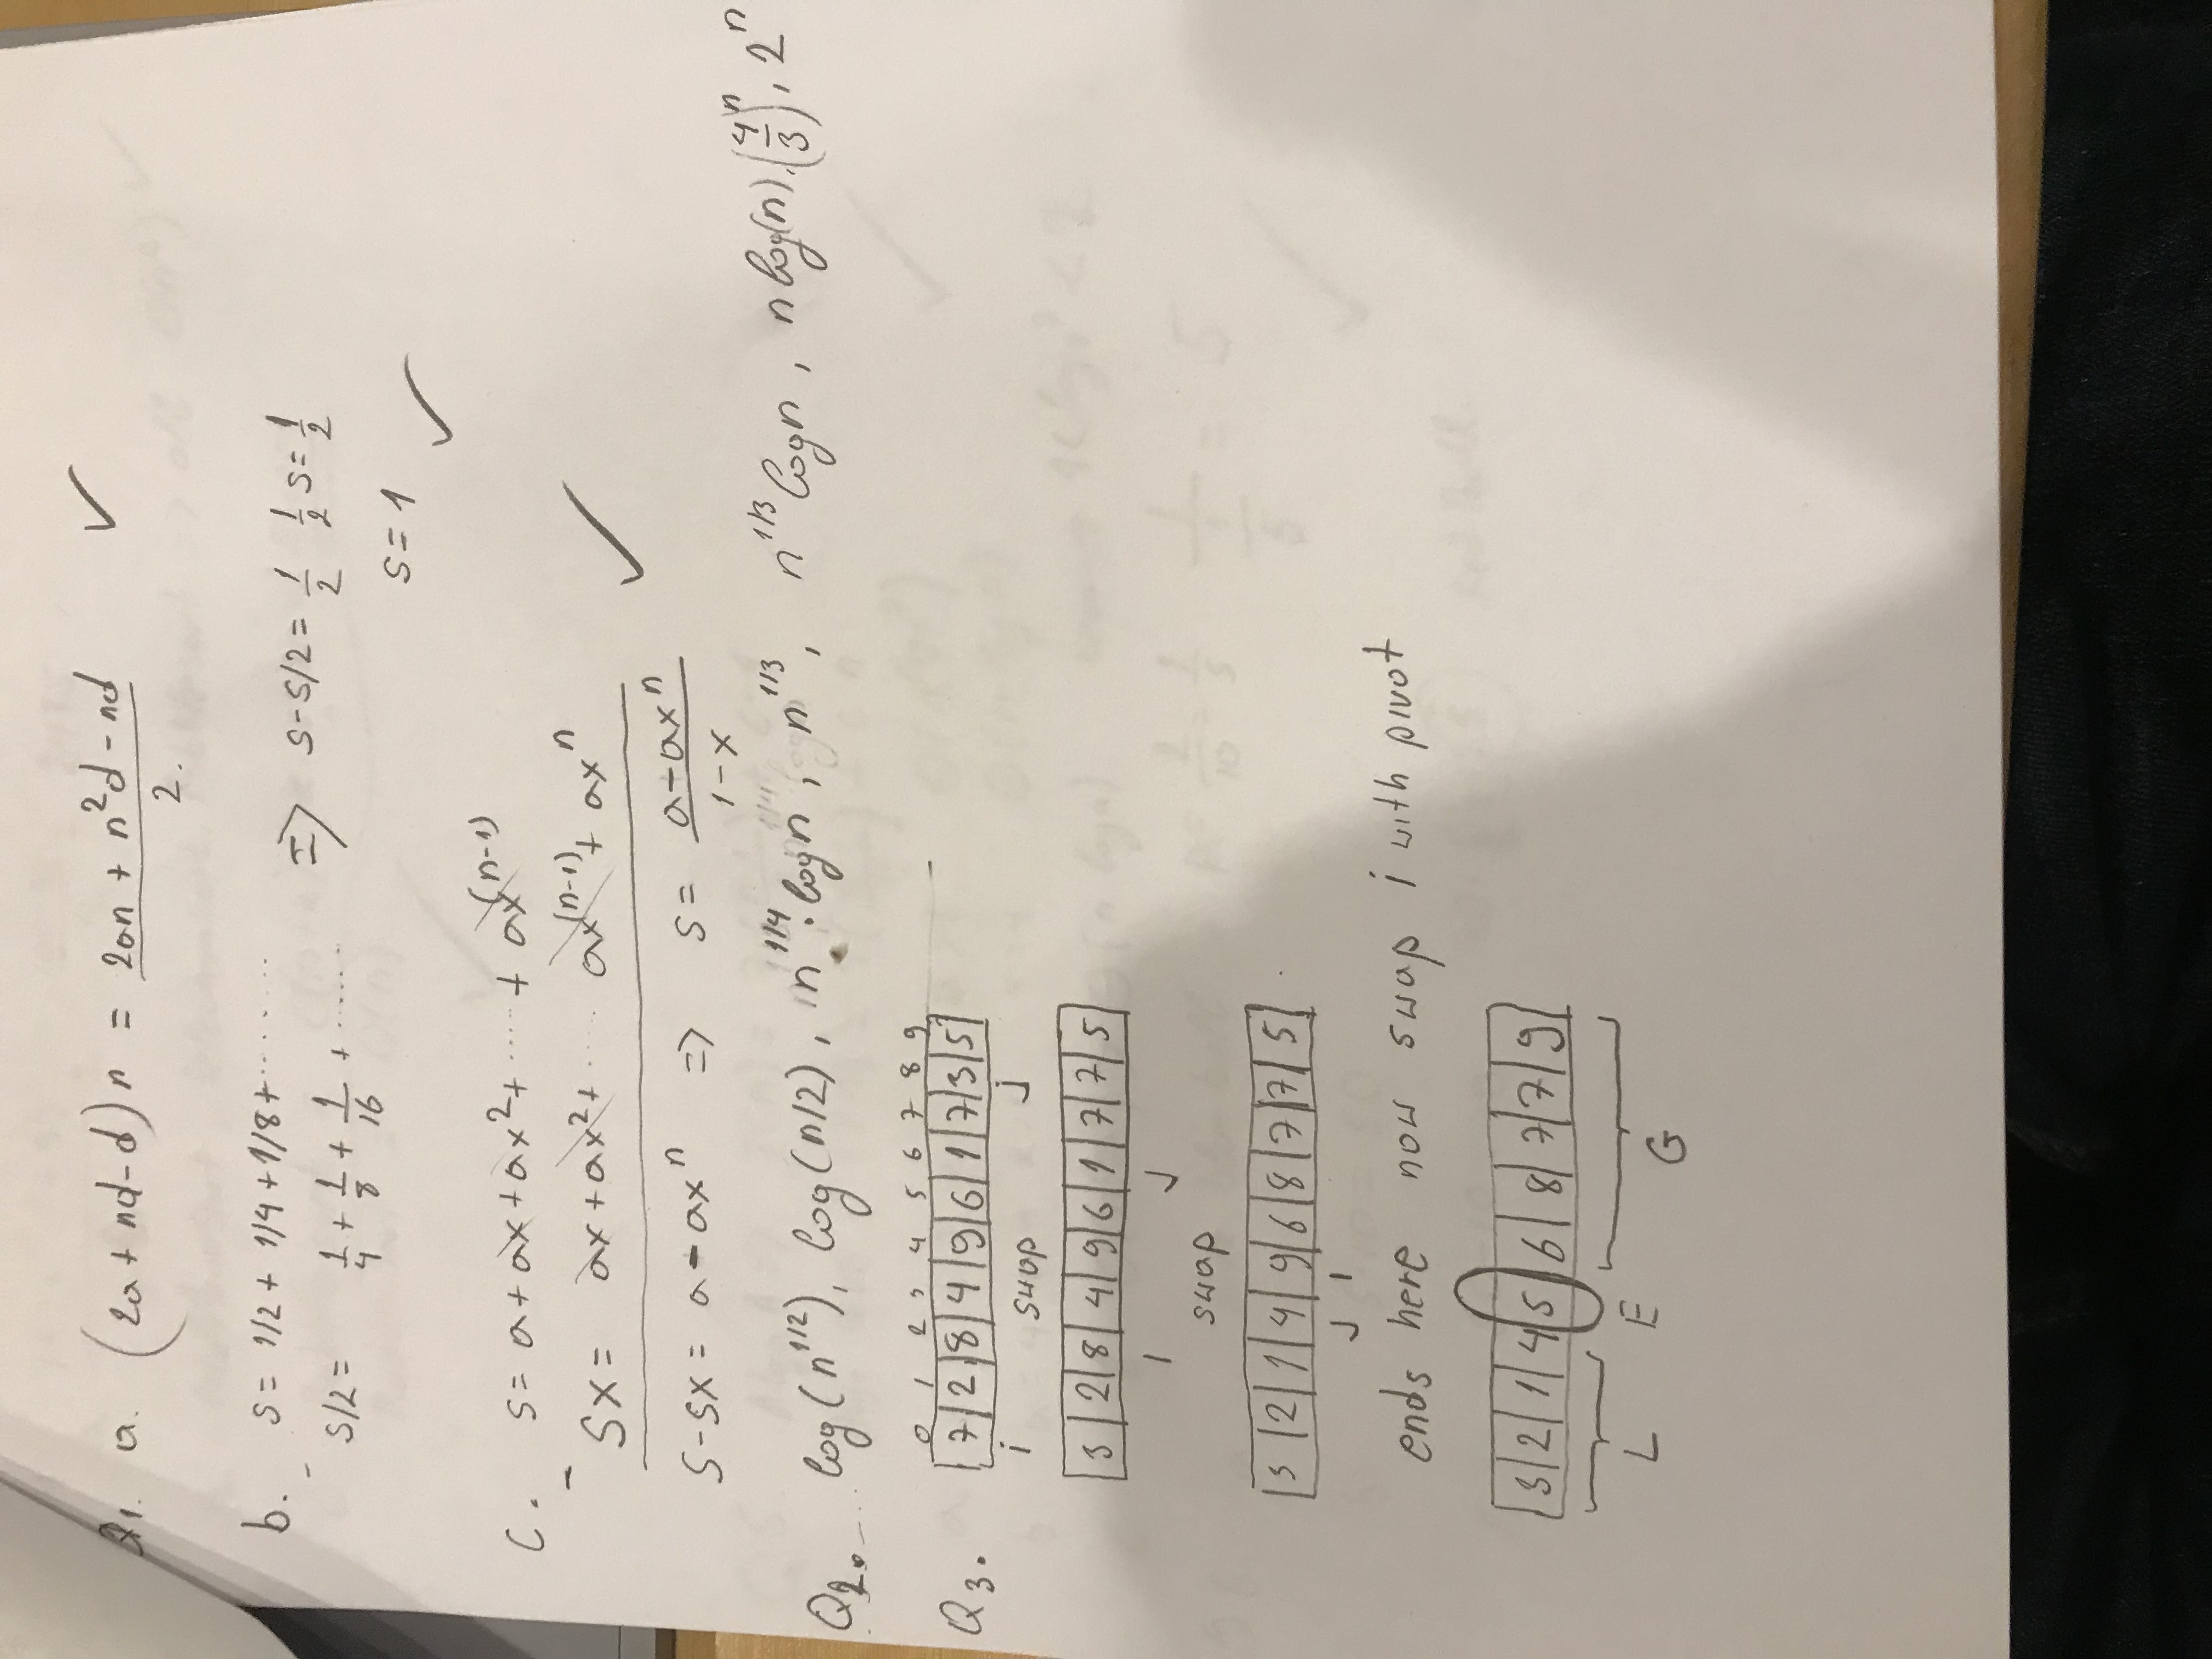 Q1. a. (2a + nd - d) n = 2an + n²d - nd / 2. ✓
b. S = 1/2 + 1/4 + 1/8 + ........ => S - S/2 = 1/2 1/2 S = 1/2
- S/2 = 1/4 + 1/8 + 1/16 + ......
S = 1 ✓
C. S = a + ax + ax² + ..... + ax^(n-1)
- Sx = ax + ax² + ..... ax^(n-1) + ax^n ✓
S - Sx = a - ax^n => S = a - ax^n / 1 - x
Q2. log(n^1/2), log(n/2), n^1/4 · log n, n^1/3, n^1/3 log n, n log(n), (4/3)^n, 2^n
0 1 2 3 4 5 6 7 8 9
Q3. 7 2 8 4 9 6 1 7 3 5
i j
swap
3 2 8 4 9 6 1 7 7 5
i J
swap
3 2 1 4 9 6 8 7 7 5
J i
ends here now swap i with pivot
3 2 1 4 5 6 8 7 7 9
L E G